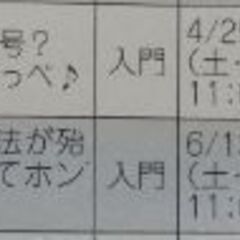 号？
っぺ♪
入門
4/2
(土・
11:
法が殆
てホン
入門
6/1
(土・
11: